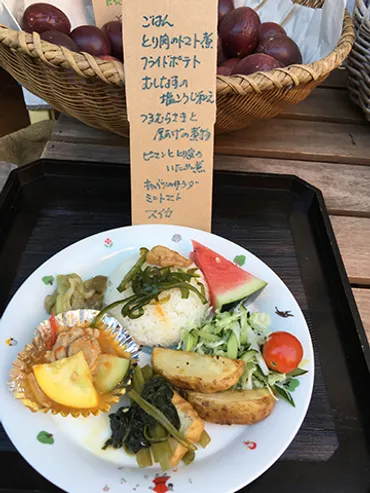 ごはん
とり肉のトマト煮
フライドポテト
むしなすの
塩こうじ和え
つるむらさきと
厚あげの煮物
ピーマンと
いため煮
サラダ
ミニトマト
スイカ